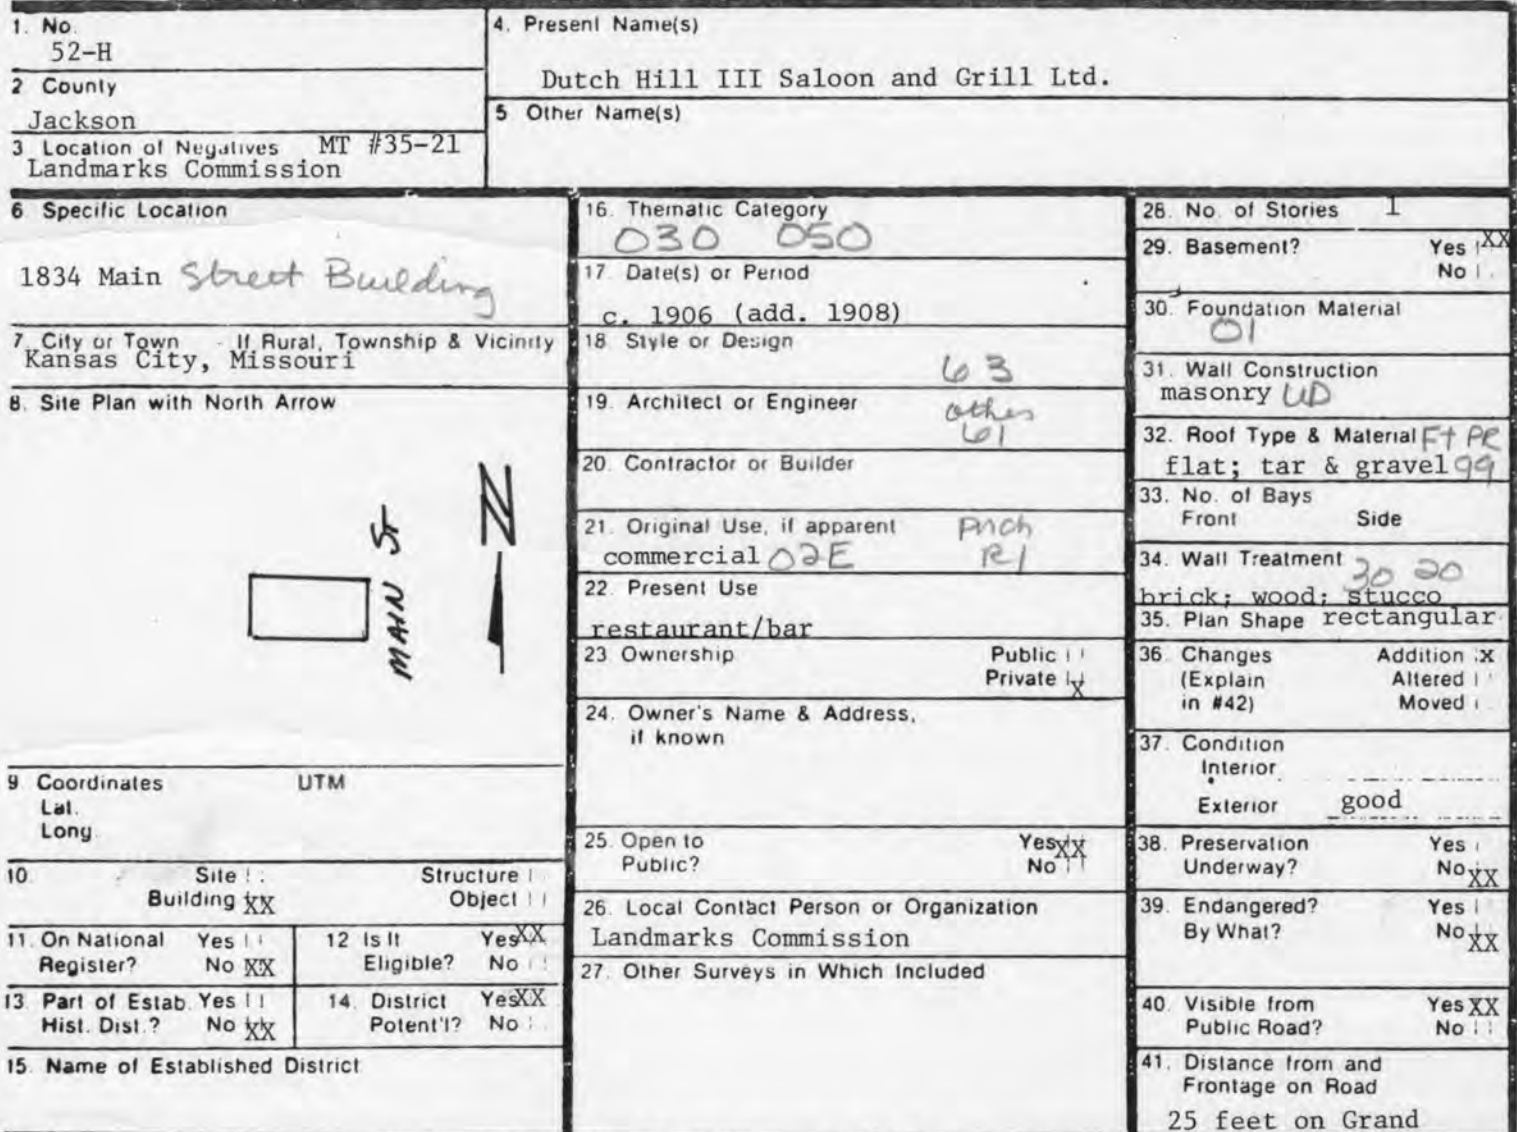 1. No.
52-H
2 County
Jackson
3 Location of Negatives MT #35-21
Landmarks Commission
4. Present Name(s)
Dutch Hill III Saloon and Grill Ltd.
5 Other Name(s)
6 Specific Location
1834 Main Street Building
7. City or Town If Rural, Township & Vicinity
Kansas City, Missouri
8. Site Plan with North Arrow
MAIN ST
N
9 Coordinates UTM
Lat.
Long.
10. Site Structure
Building XX Object
11. On National Yes
Register? No XX
12 Is It Yes XX
Eligible? No
13. Part of Estab. Yes
Hist. Dist.? No XX
14. District Yes XX
Potent'l? No
15. Name of Established District
16. Thematic Category
030 050
17. Date(s) or Period
c. 1906 (add. 1908)
18. Style or Design
63
19. Architect or Engineer other
61
20. Contractor or Builder
21. Original Use, if apparent
commercial 02E R1
22. Present Use
restaurant/bar
23 Ownership Public
Private X
24. Owner's Name & Address,
if known
25. Open to Yes XX
Public? No
26. Local Contact Person or Organization
Landmarks Commission
27. Other Surveys in Which Included
28. No. of Stories 1
29. Basement? Yes XX
No
30. Foundation Material
01
31. Wall Construction
masonry UD
32. Roof Type & Material Ft PR
flat; tar & gravel 99
33. No. of Bays
Front Side
34. Wall Treatment 30 20
brick; wood; stucco
35. Plan Shape rectangular
36. Changes Addition X
(Explain Altered
in #42) Moved
37. Condition
Interior
Exterior good
38. Preservation Yes
Underway? No XX
39. Endangered? Yes
By What? No XX
40. Visible from Yes XX
Public Road? No
41. Distance from and
Frontage on Road
25 feet on Grand